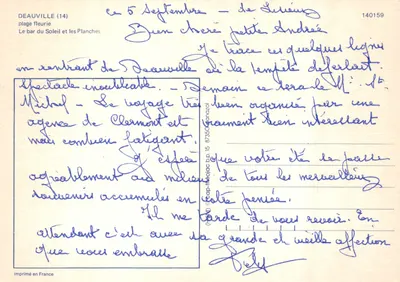 DEAUVILLE (14)
plage fleurie
Le bar du Soleil et les Planches
140159
ce 5 Septembre - de Lisieux
Bien chère petite Andrée
Je trace ces quelques lignes
en rentrant de Deauville où la tempête déferlait.
Spectacle inoubliable. - Demain ce sera le Mt. St
Michel - Le voyage très bien organisé par une
agence de Clermont est vraiment bien intéressant
mais combien fatigant.
J'espère que votre été se passe
agréablement au milieu de tous les merveilleux
souvenirs accumulés en votre pensée.
Il me tarde de vous revoir. En
attendant c'est avec sa grande et vieille affection
que vous embrasse
imprimé en France